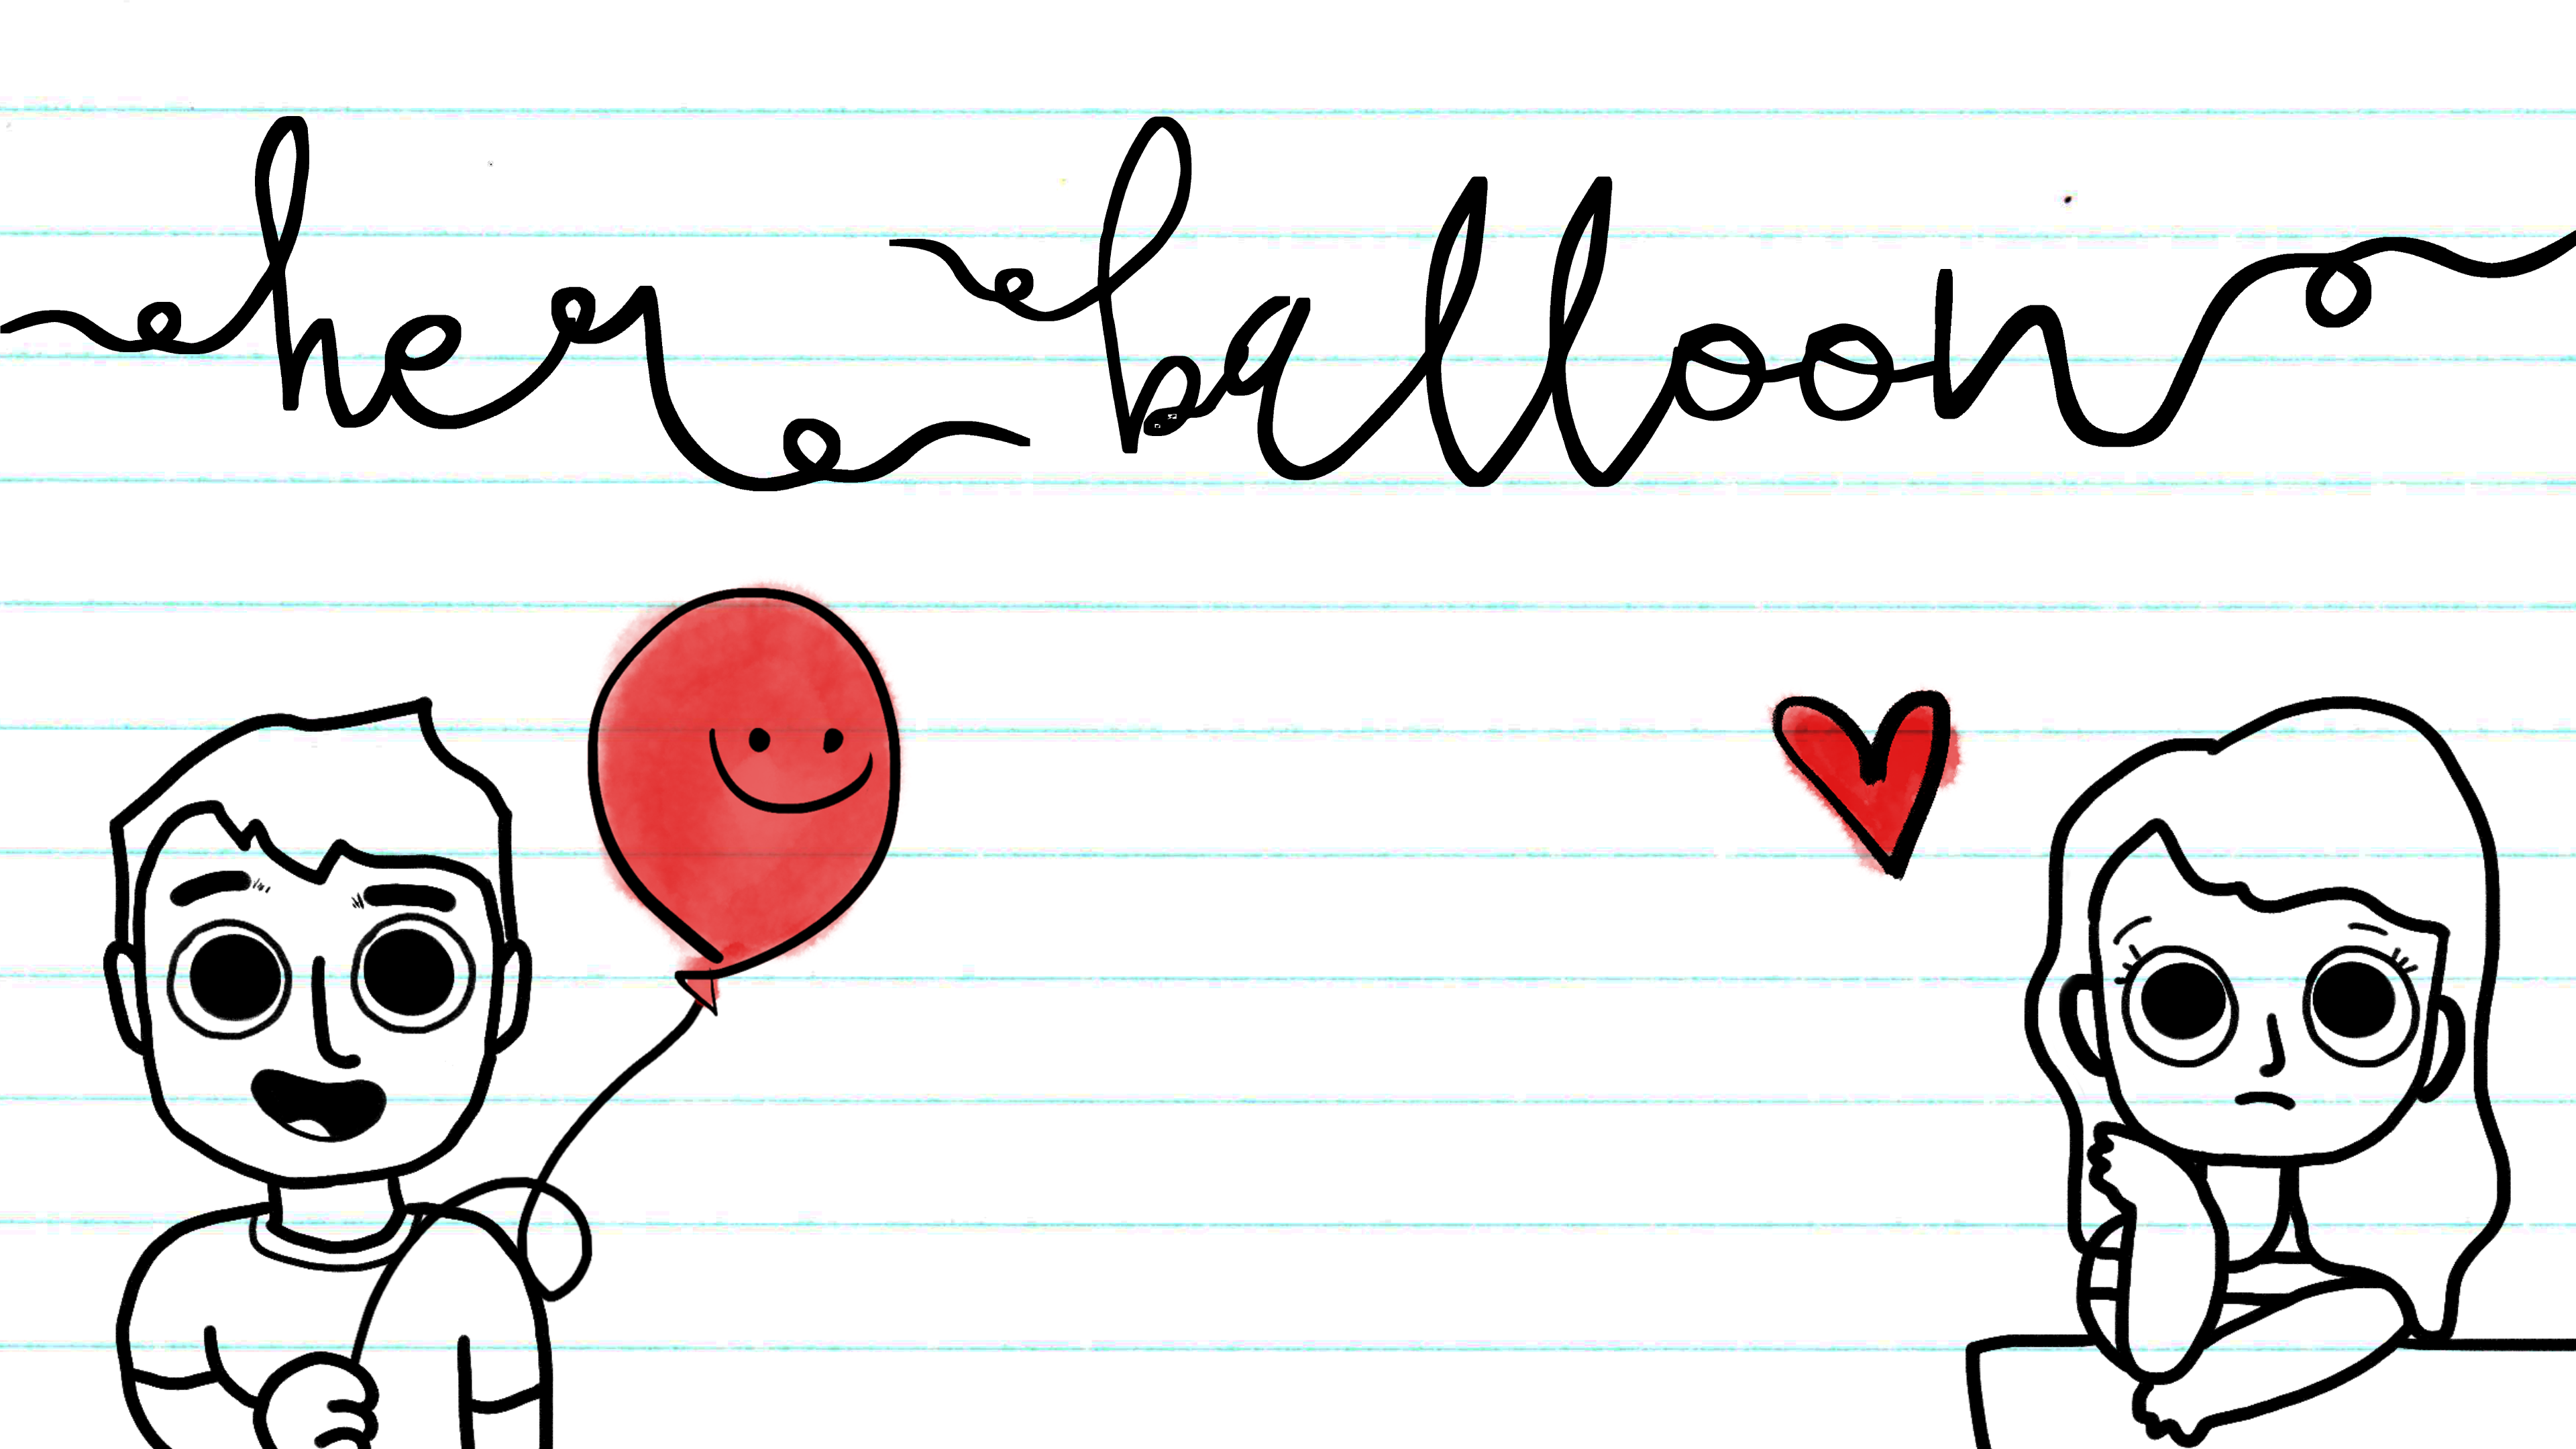 her balloon